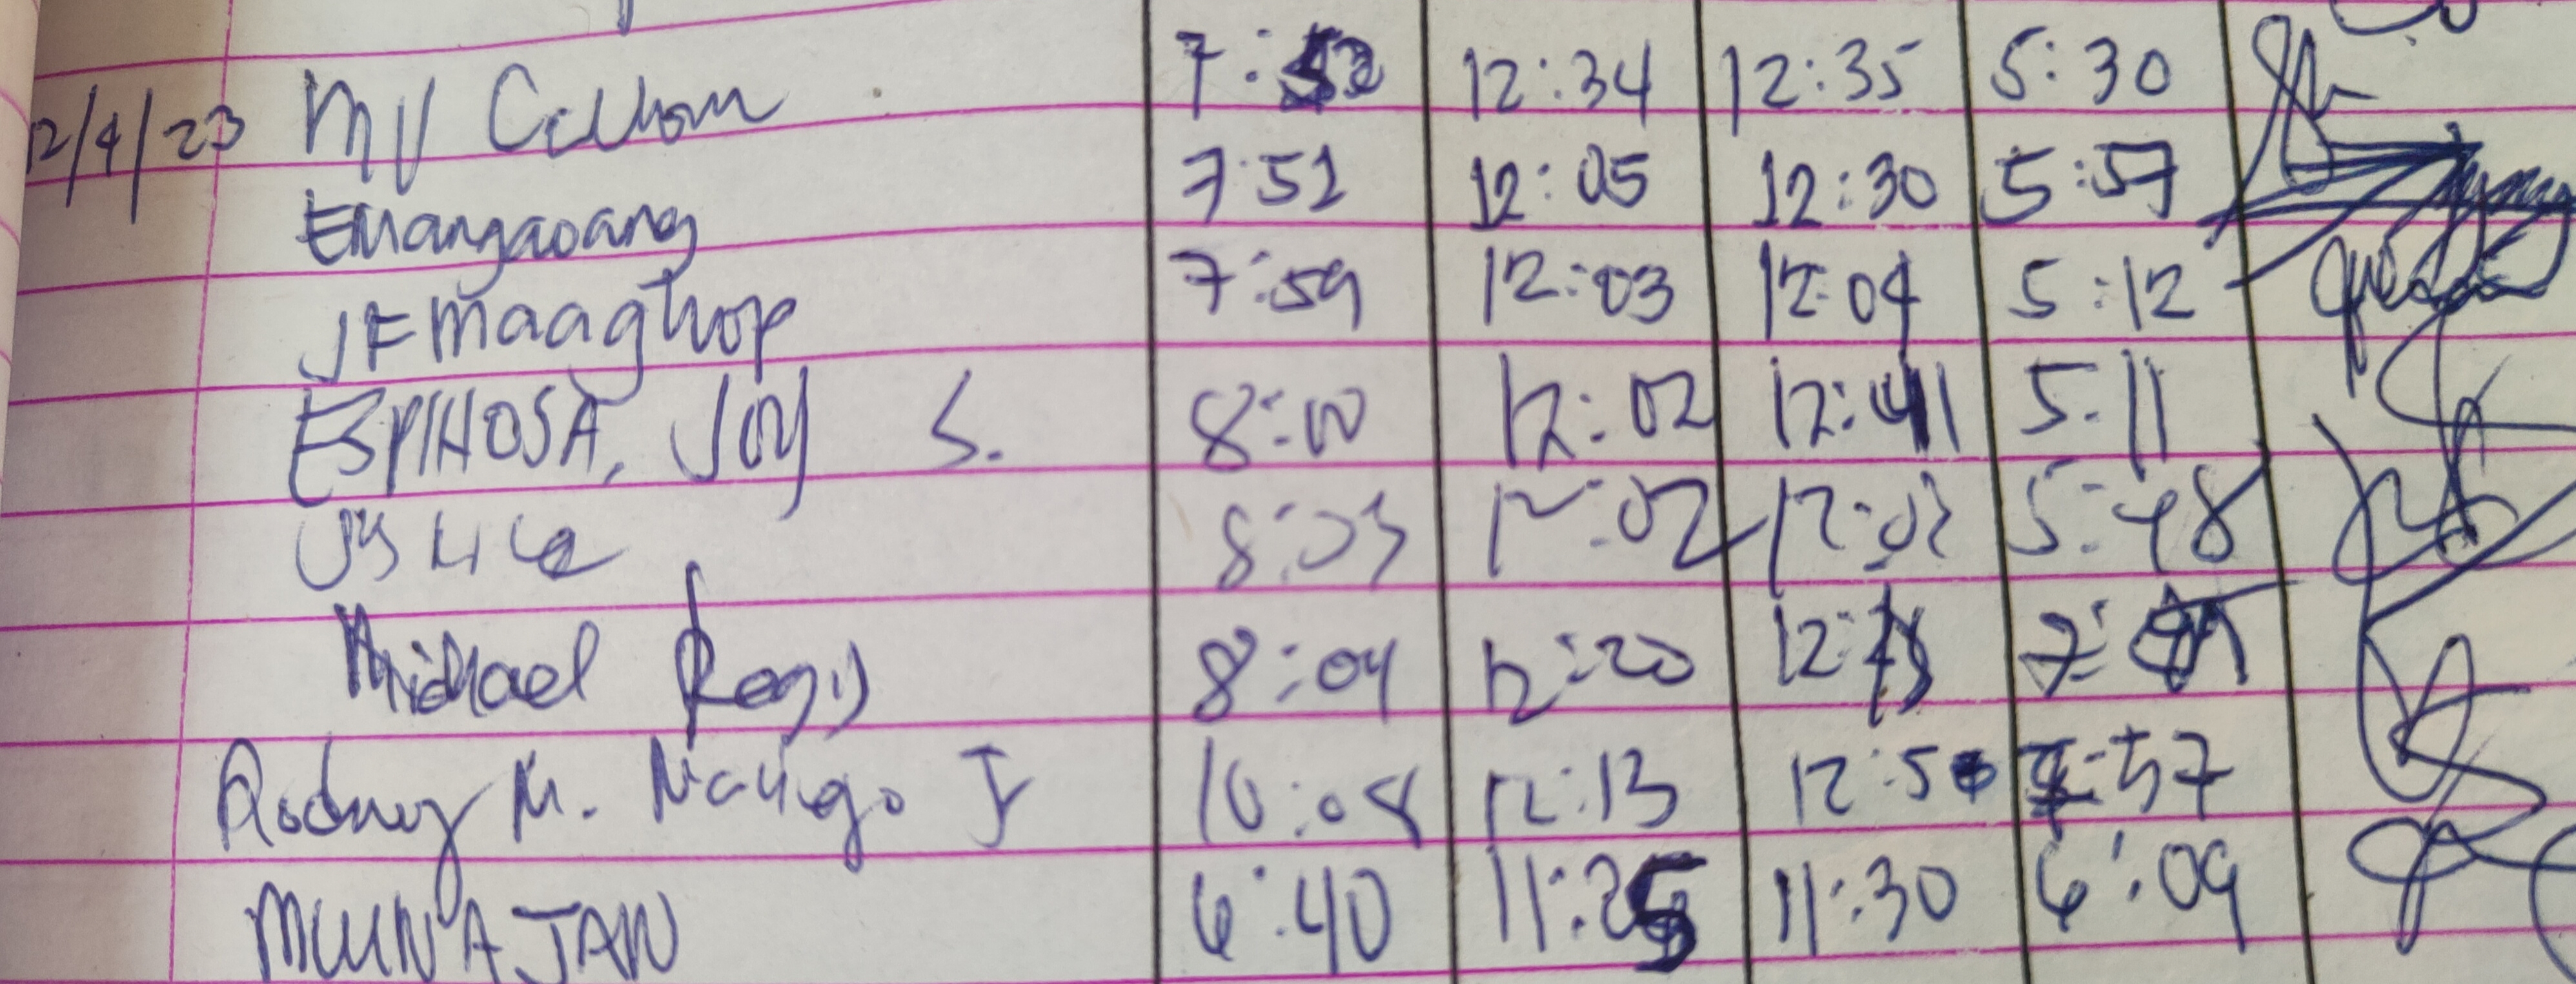 12/4/23 MV 7:52 12:34 12:35 5:30
EMangaoang 7:52 12:05 12:30 5:57
JF Maaghop 7:59 12:03 12:04 5:12
ESPINOSA, JOY S. 8:00 12:02 12:41 5:11
8:03 12:02 12:03 5:48
Michael 8:04 12:20
Rodney M. Jr 10:08 12:13 :57
JAN 6:40 11:25 11:30 6:09